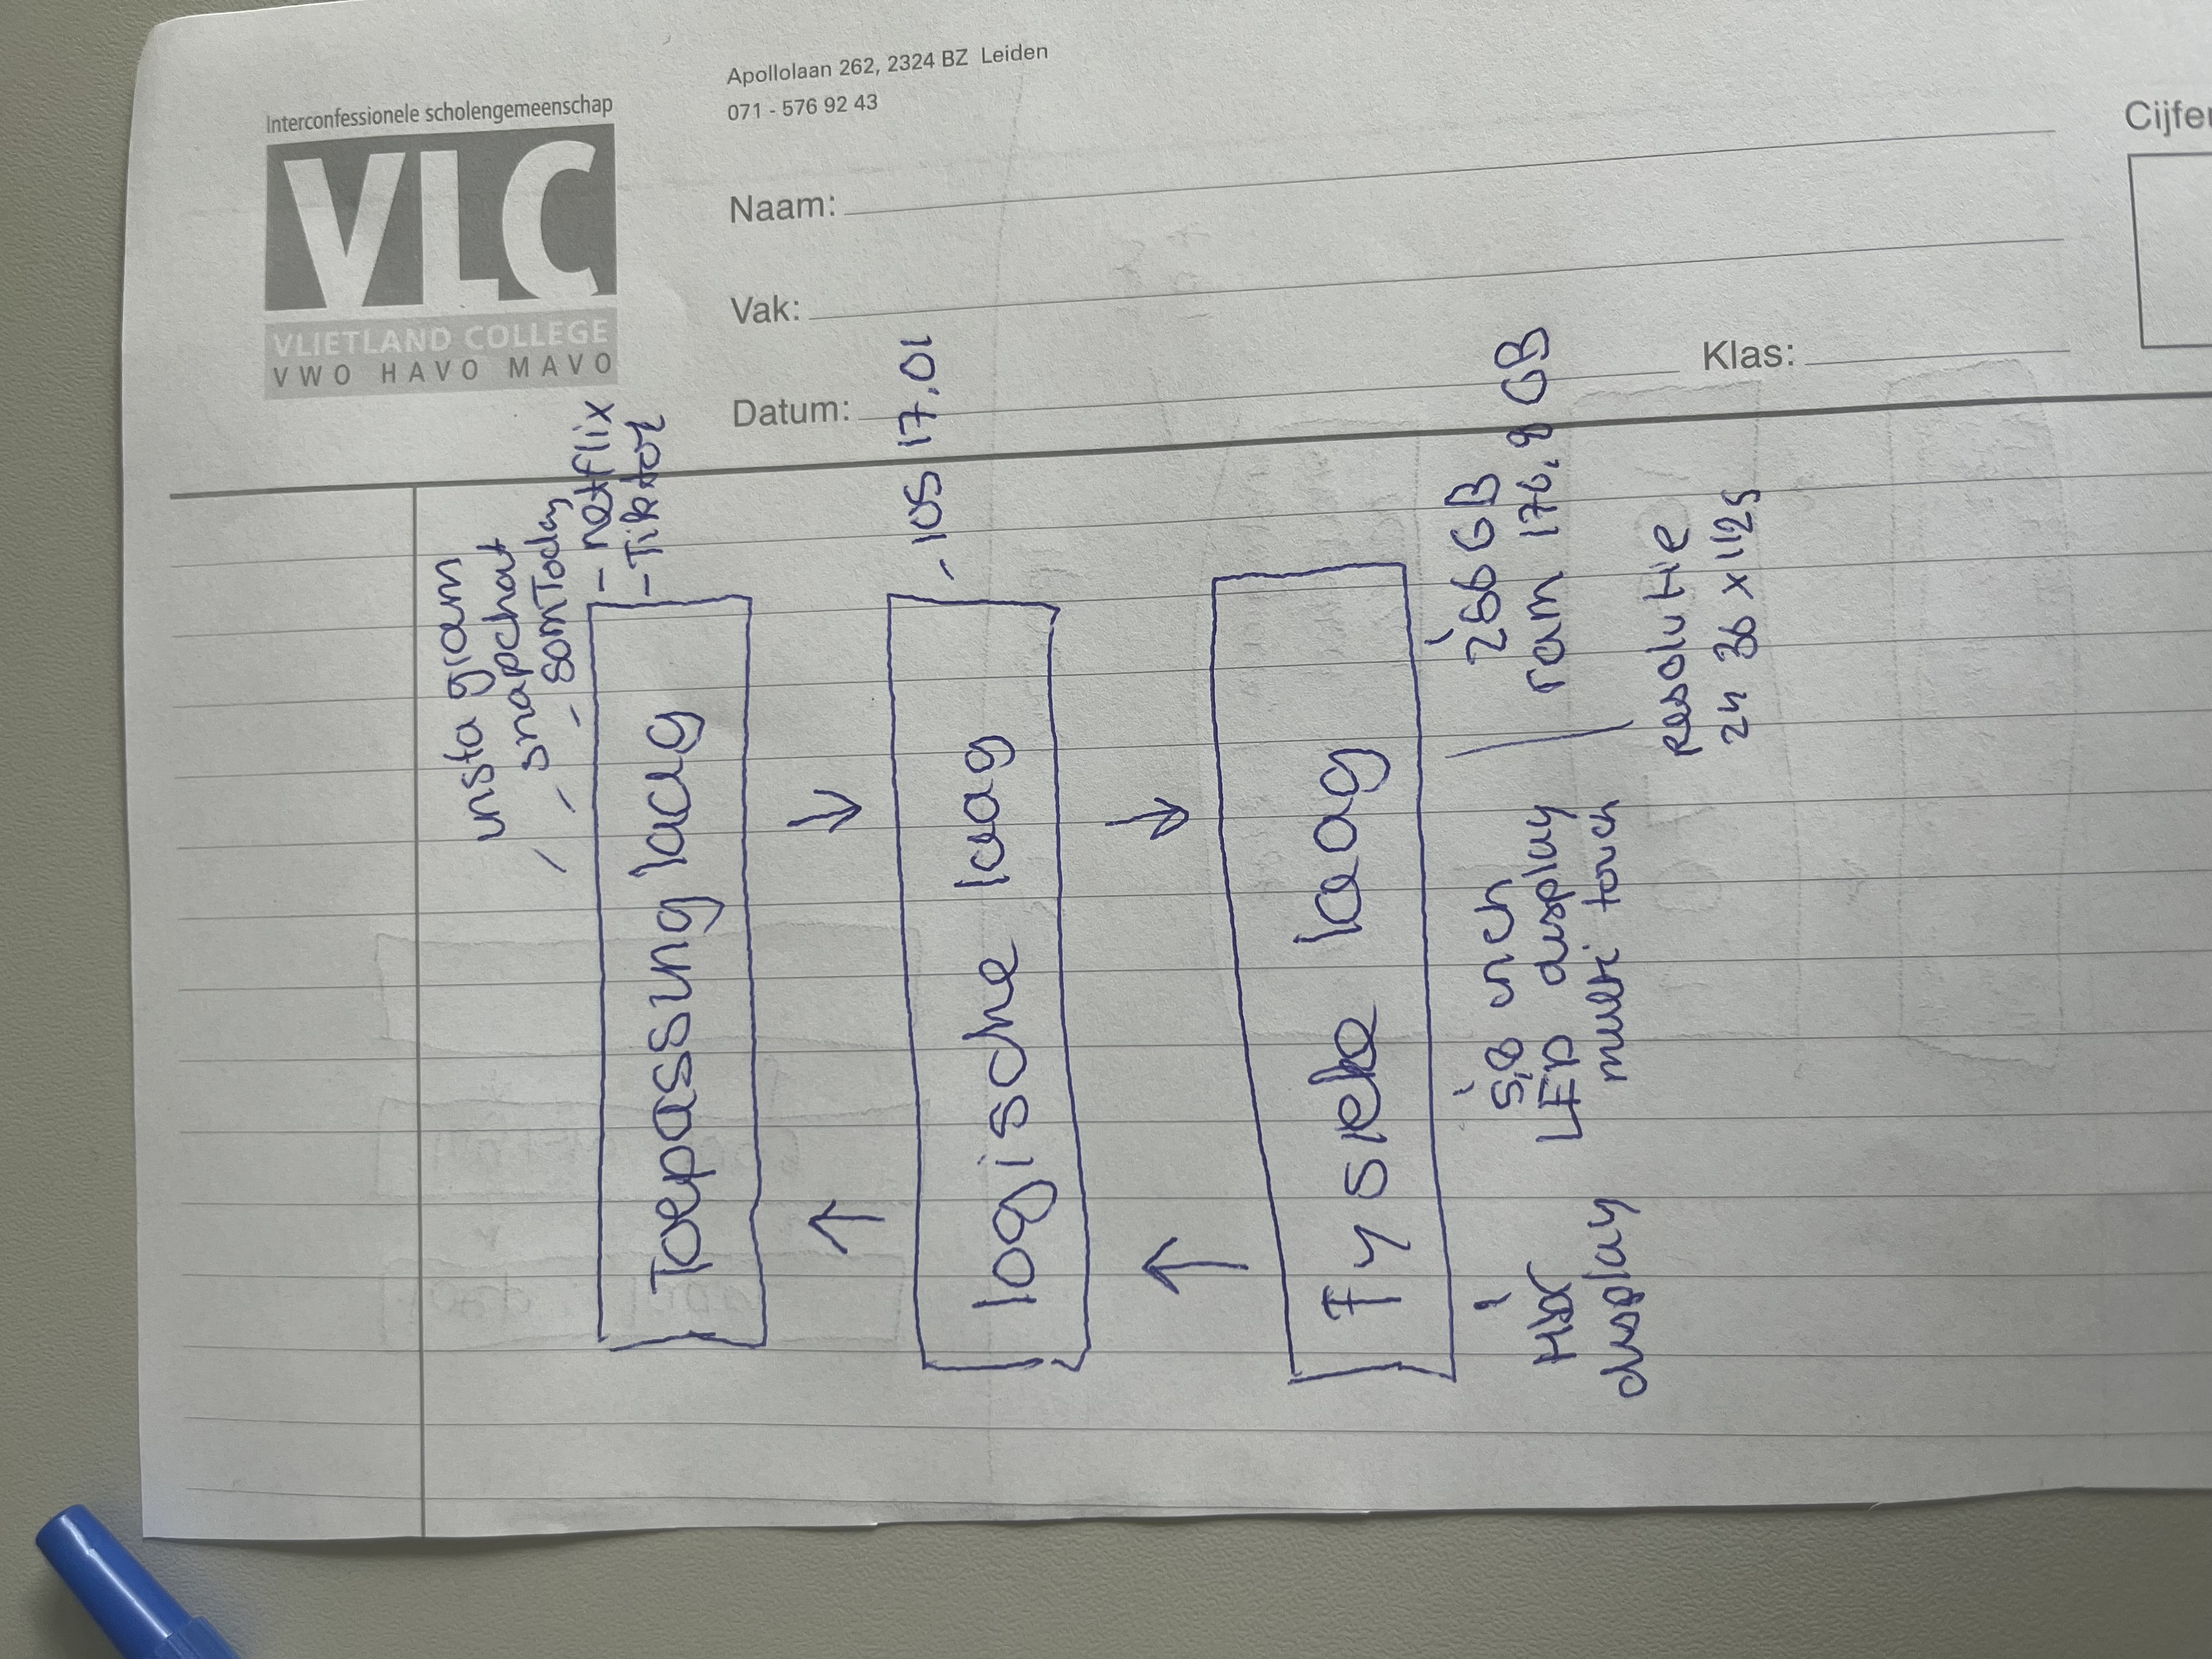 Interconfessionele scholengemeenschap
VLC
VLIETLAND COLLEGE
VWO HAVO MAVO
Apollolaan 262, 2324 BZ Leiden
071 - 576 92 43
Naam:
Vak:
Datum:
Klas:
Cijfer
insta gram
snapchat
somToday
- netflix
- Tiktok
Toepassing laag
logische laag
- IOS 17.01
Fysieke laag
Hbr
display
5,8 inch
LED display
multi touch
266 GB
ram 170.8 GB
resolutie
24 36 x 1125